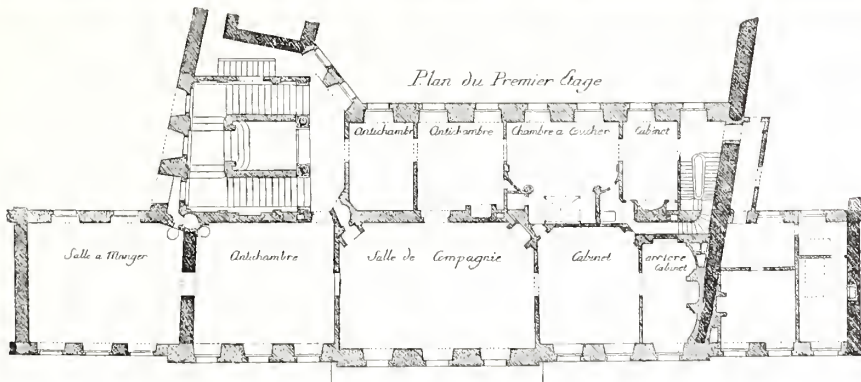 Plan du Premier Etage
Antichambr
Antichambre
Chambre a Coucher
Cabinet
Salle a Manger
Antichambre
Salle de Compagnie
Cabinet
arriere
Cabinet